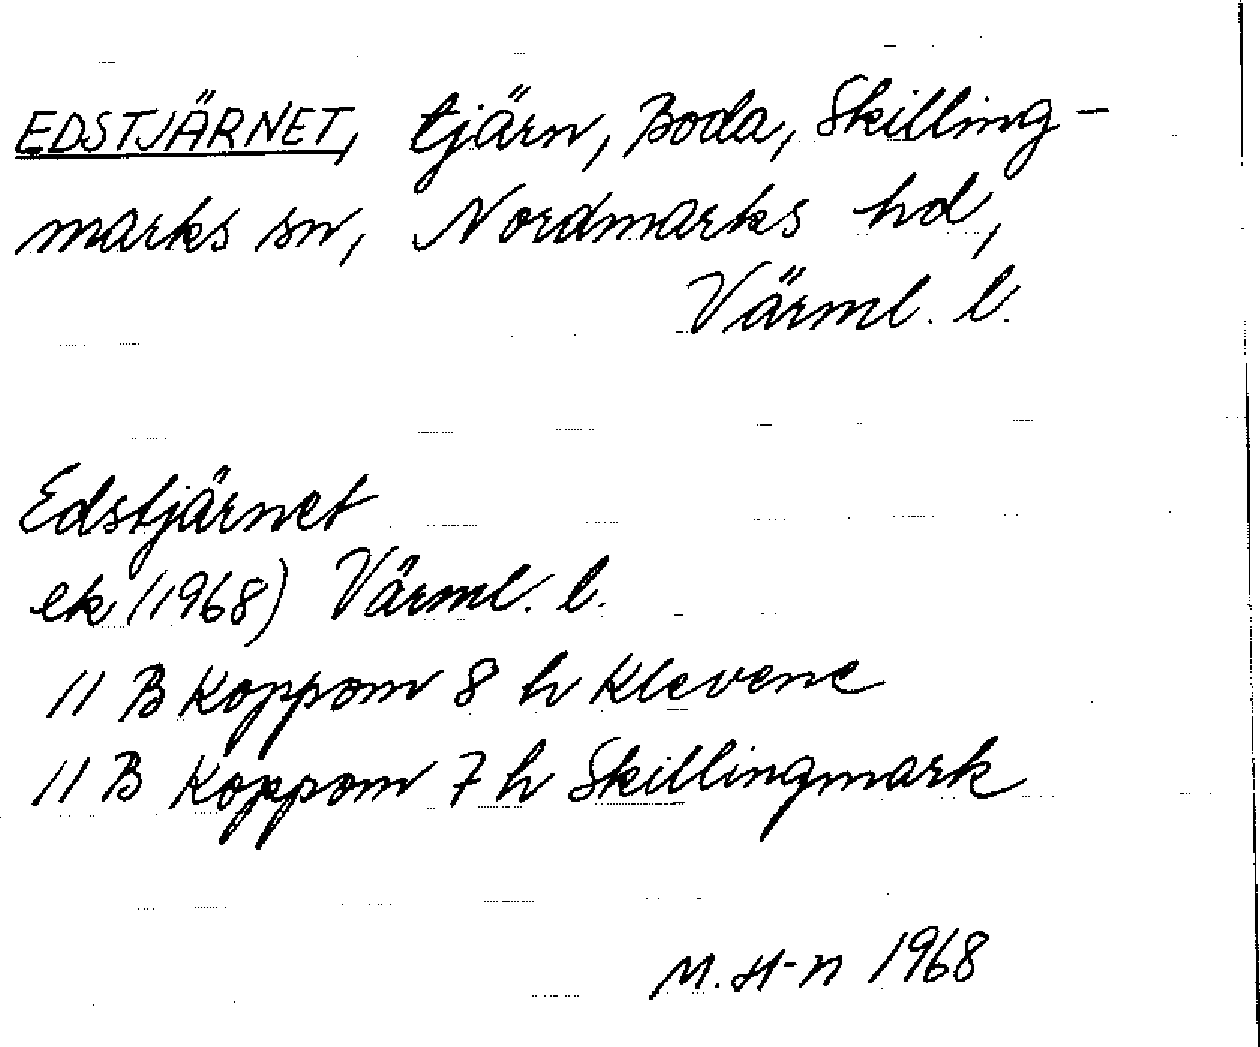 EDSTJÄRNET, tjärn, Boda, Skilling-
marks sn, Nordmarks hd,
Värml. l.
Edstjärnet
ek (1968) Värml. l.
11 B Koppom 8 h Klevene
11 B Koppom 7 h Skillingmark
M. H-n 1968